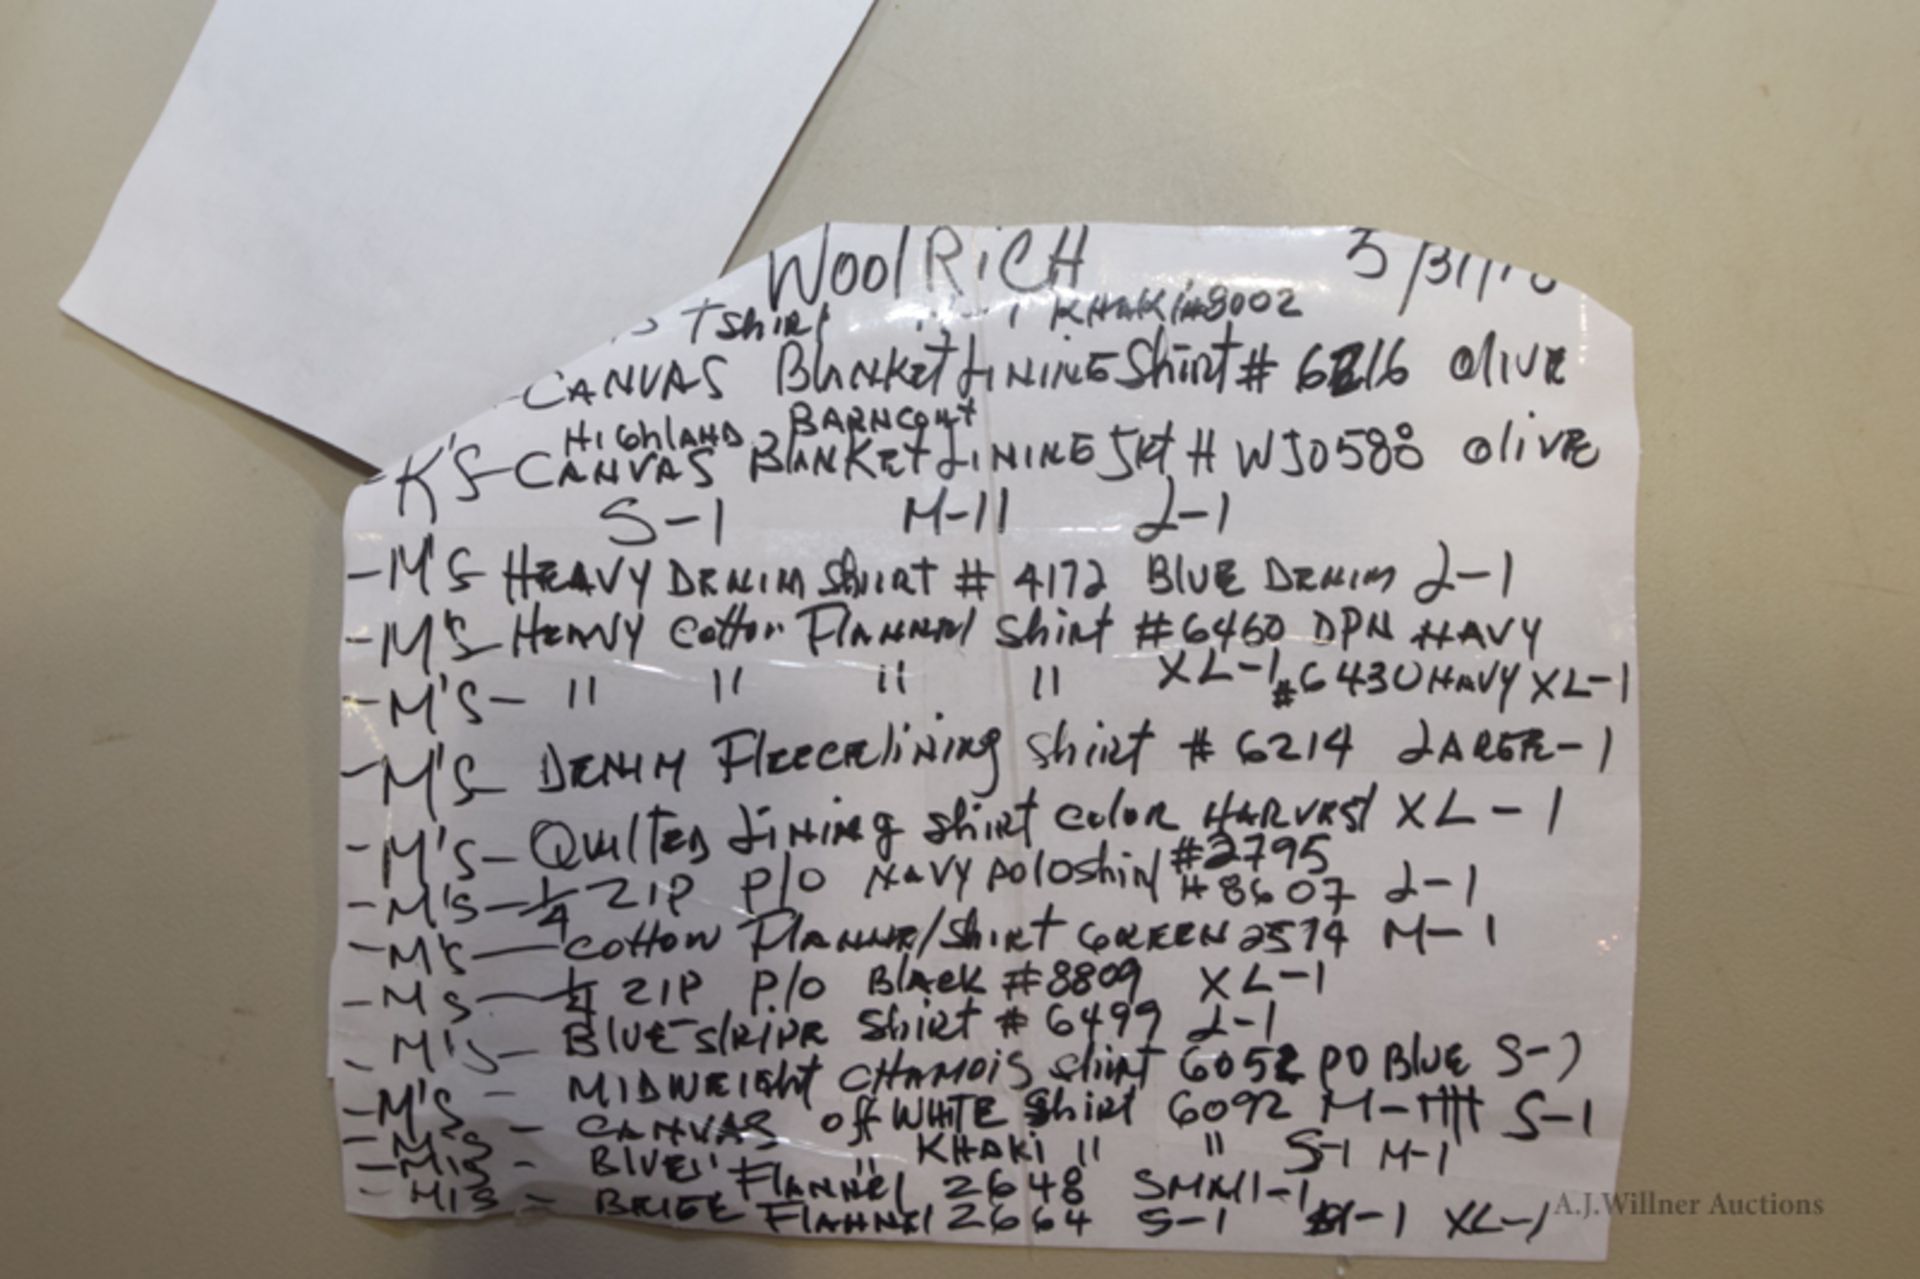 WoolRiCH 5/31/
TShirt KHAKI #8002
-CANVAS BlANKEt LiNiNE Shirt # 6216 OliVE
HiGhlAND BARNCOAt
K'S-CANVAS BlANKEt LiNiNE Skt # WJ0588 OliVE
S-1 M-11 L-1
-M'S HEAVY DENIM Shirt # 4172 BlUE DENIM L-1
-M'S-HEAVY Cotton FlANNEl Shirt #6460 DPN NAVY
XL-1
-M'S- 11 11 11 11 #6430 NAVY XL-1
-M'S- DENIM FlEECElining Shirt # 6214 LARGE-1
-M'S-QuiltED Lining Shirt Color HARVESt XL-1
#2795
-M'S-1/4 ZIP P/O NAVY poloshirt #8607 L-1
-M'S-Cotton FlANNEl Shirt GREEN 2574 M-1
-M'S-1/4 ZIP P/O BlAcK #8809 XL-1
- M'S- BlUE StRiPE Shirt # 6499 L-1
-M'S - MIDWEIGht CHAMOIS Shirt 6052 PD BlUE S-
-M'S - CANVAS off WHiTE Shirt 6092 S-1
" KHAKi " " S-1 M-1
-M'S - BlUE FlANNEl 2648
- M'S - FlANNEl 2664 S-1 XL-1
A.J.Willner Auctions